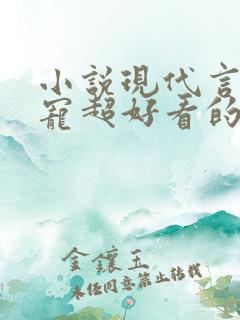 小説現代言
寵超好看的
金鑲玉
未经同意禁止转载